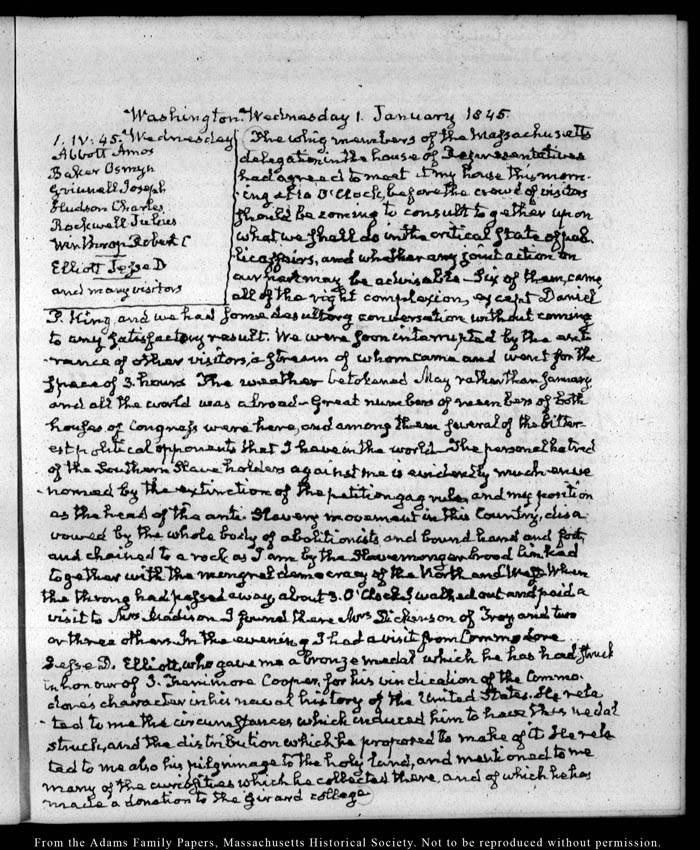 Washington. Wednesday 1. January 1845.
1. IV: 45. Wednesday
Abbott Amos
Baker Osmyn
Grinnell Joseph
Hudson Charles
Rockwell Julius
Winthrop Robert C
Elliott Jesse D
and many visitors
The whig members of the Massachusetts
delegation in the house of Representatives
had agreed to meet at my house this morn-
ing at 10 O'Clock, before the crowd of visitors
should be coming to consult together upon
what we shall do in the critical State of pub-
lic affairs, and whether any joint action on
our part may be advisable— Six of them, came
all of the right complexion, except Daniel
P. King, and we had some desultory conversation without coming
to any satisfactory result. We were soon interrupted by the ent-
rance of other visitors, a stream of whom came and went for the
space of 3. hours The weather betokened May rather than January
and all the world was abroad— Great numbers of members of both
houses of Congress were here, and among them several of the bitter-
est political opponents that I have in the world— The personal hatred
of the Southern Slave holders against me is evidently much enve-
nomed by the extinction of the petition gag rule, and my position
as the head of the anti-Slavery movement in this Country, disa-
vowed by the whole body of abolitionists and bound hand and foot,
and chained to a rock as I am by the Slavemonger brood linked
together with the mongrel democracy of the North and West. When
the throng had passed away, about 3. O'Clock I walked out and paid a
visit to Mrs Madison I found there Mrs Dickinson of Troy and two
or three others. In the evening I had a visit from Commodore
Jesse D. Elliott, who gave me a bronze medal which he has had struck
in honour of J. Fennimore Cooper, for his vindication of the Commo-
dores character in his naval history of the United States. He rela-
ted to me the circumstances which induced him to have this medal
struck, and the distribution which he proposed to make of it He rela-
ted to me also his pilgrimage to the holy land, and mentioned to me
many of the curiosities which he collected there, and of which he has
made a donation to the Girard college
From the Adams Family Papers, Massachusetts Historical Society. Not to be reproduced without permission.